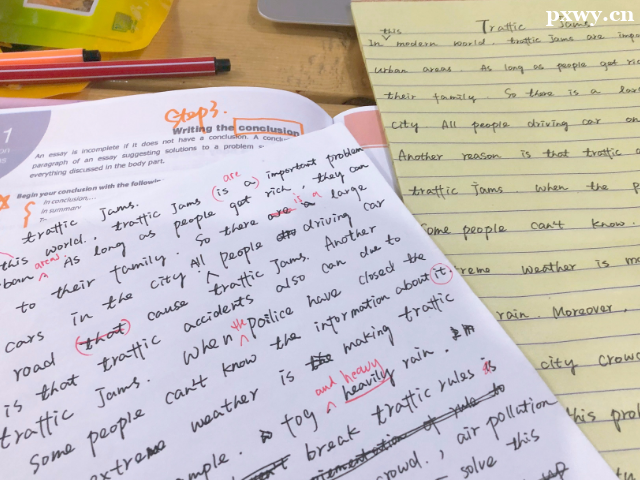 pxwy.cn
Traffic Jams
this
In modern world. traffic jams are impo
urban areas. As long as people got ric
their family. So there is a lar
city All people driving car on
Another reason is that traffic a
traffic jams when the p
Some people can't know.
reme weather is m
rain. Moreover,
city crowd
this prob
Step3.
Writing the conclusion
An essay is incomplete if it does not have a conclusion. A conclu
paragraph of an essay suggesting solutions to a problem
everything discussed in the body part.
1
Begin your conclusion with the followin
in conclusion,...
in summary
traffic jams.
are
this world. traffic jams (is a) important problem
rban areas As long as people got rich, they can
is a
to their family. So there are a large
cars in the city All people driving car
road that cause traffic jams. Another
is that traffic accidents also can due to
the
traffic jams. When poilice have closed the
Some people can't know the information about it.
extreme weather is the making traffic
and heavy
mple. fog heavily rain.
break traffic rules is
ementation of rule to
crowd., air pollution
solve this